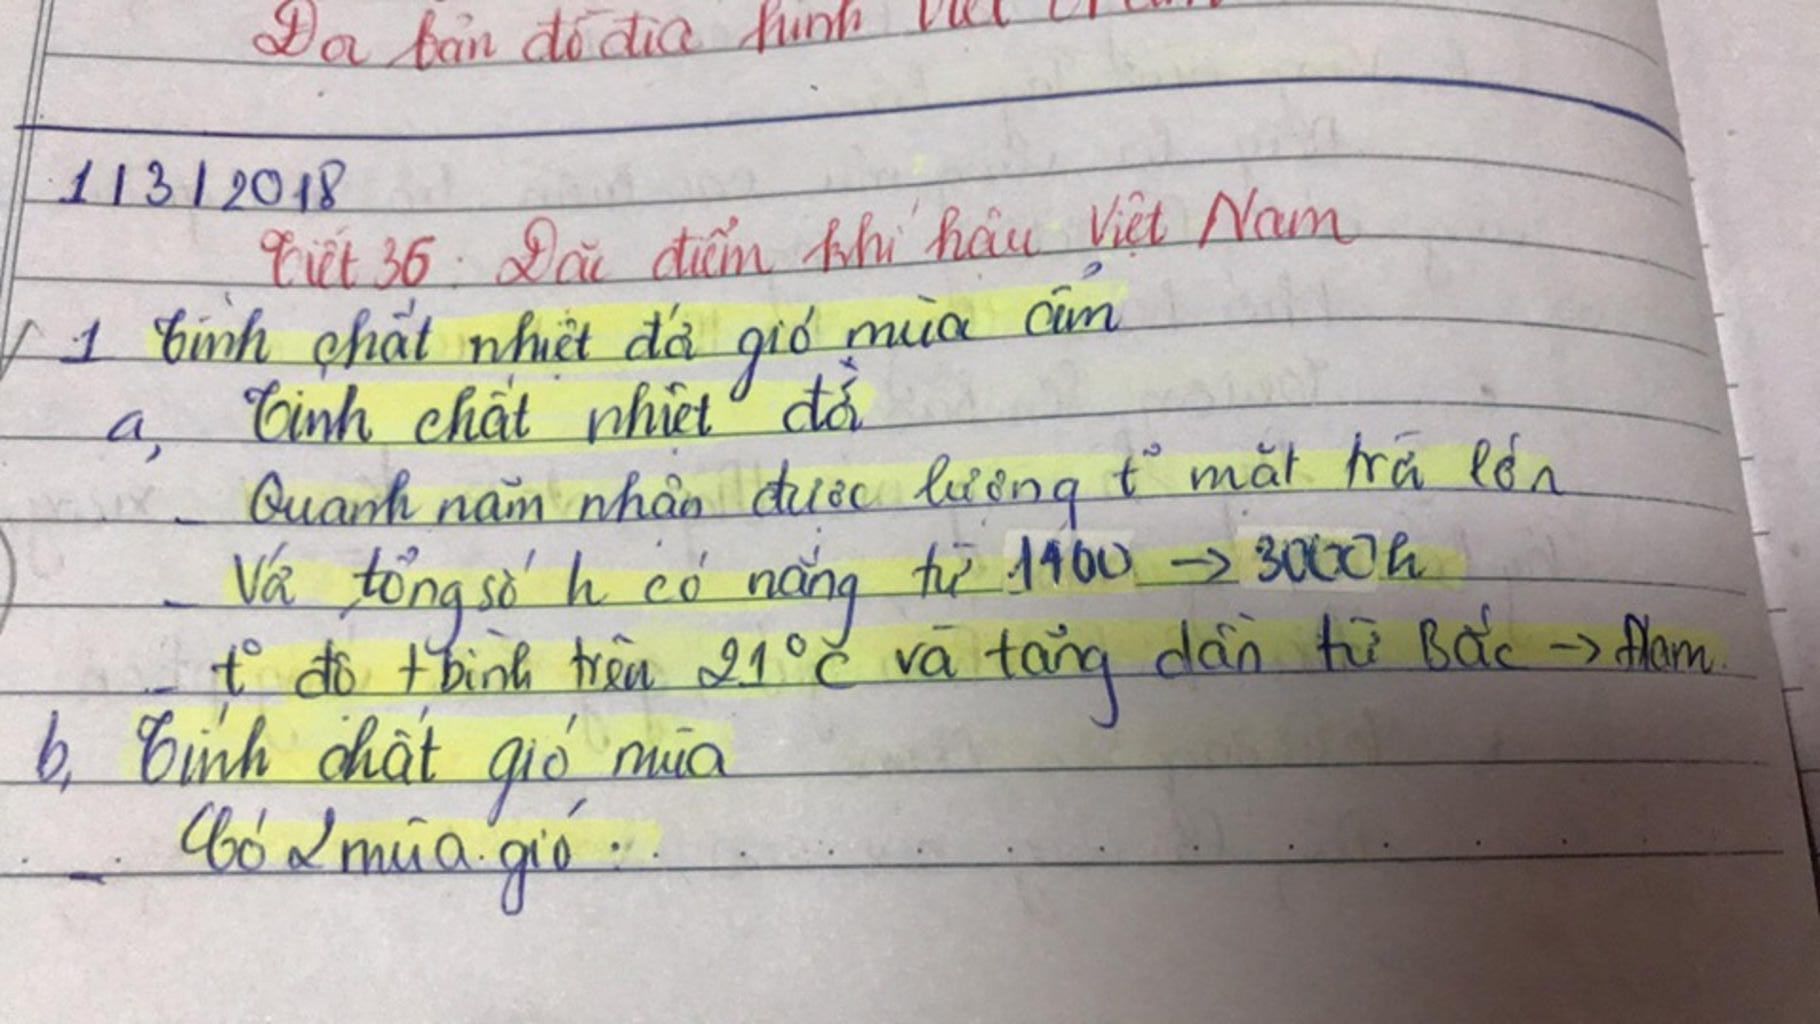 Da bản đồ địa hình Việt
1/3/2018
Tiết 36: Đặc điểm khí hậu Việt Nam
1 Tính chất nhiệt đới gió mùa ẩm
a, Tính chất nhiệt đới
- Quanh năm nhận được lượng t° mặt trời lớn
- Và tổng số h có nắng từ 1400 → 3000h
- t° độ tbình trên 21°C và tăng dần từ Bắc → Nam
b, Tính chất gió mùa
- Có 2 mùa gió: